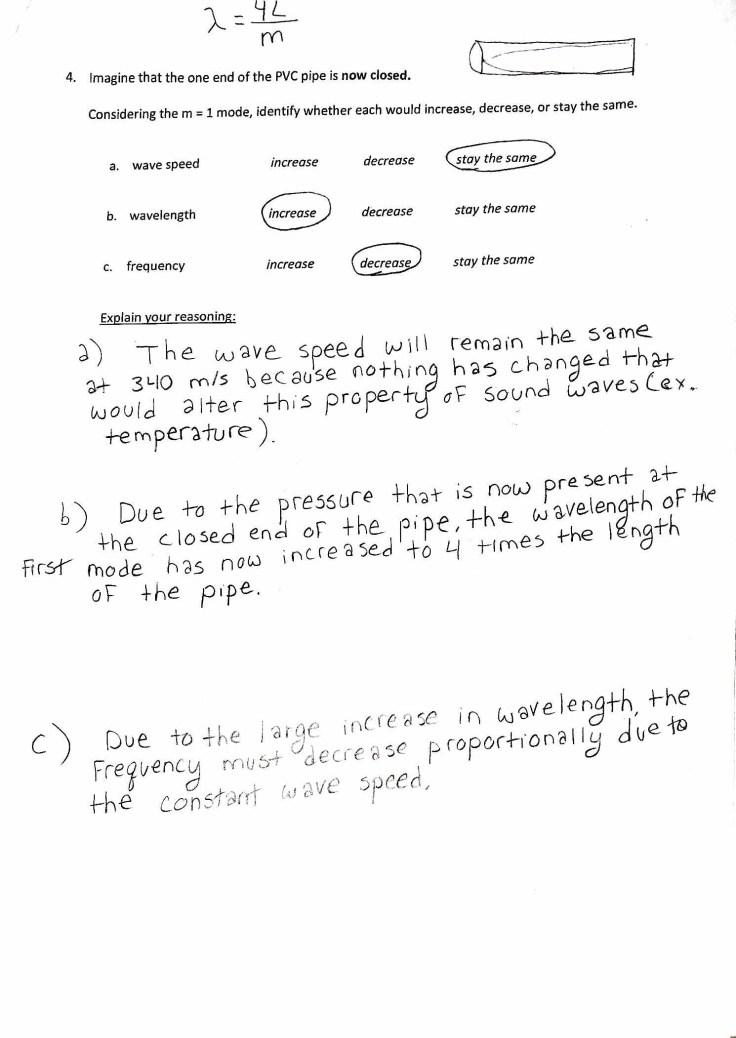 λ = 4L/m
4. Imagine that the one end of the PVC pipe is now closed.
Considering the m = 1 mode, identify whether each would increase, decrease, or stay the same.
a. wave speed increase decrease stay the same
b. wavelength increase decrease stay the same
c. frequency increase decrease stay the same
Explain your reasoning:
a) The wave speed will remain the same
at 340 m/s because nothing has changed that
would alter this property of sound waves (ex.
temperature).
b) Due to the pressure that is now present at
the closed end of the pipe, the wavelength of the
first mode has now increased to 4 times the length
of the pipe.
c) Due to the large increase in wavelength, the
frequency must decrease proportionally due to
the constant wave speed.